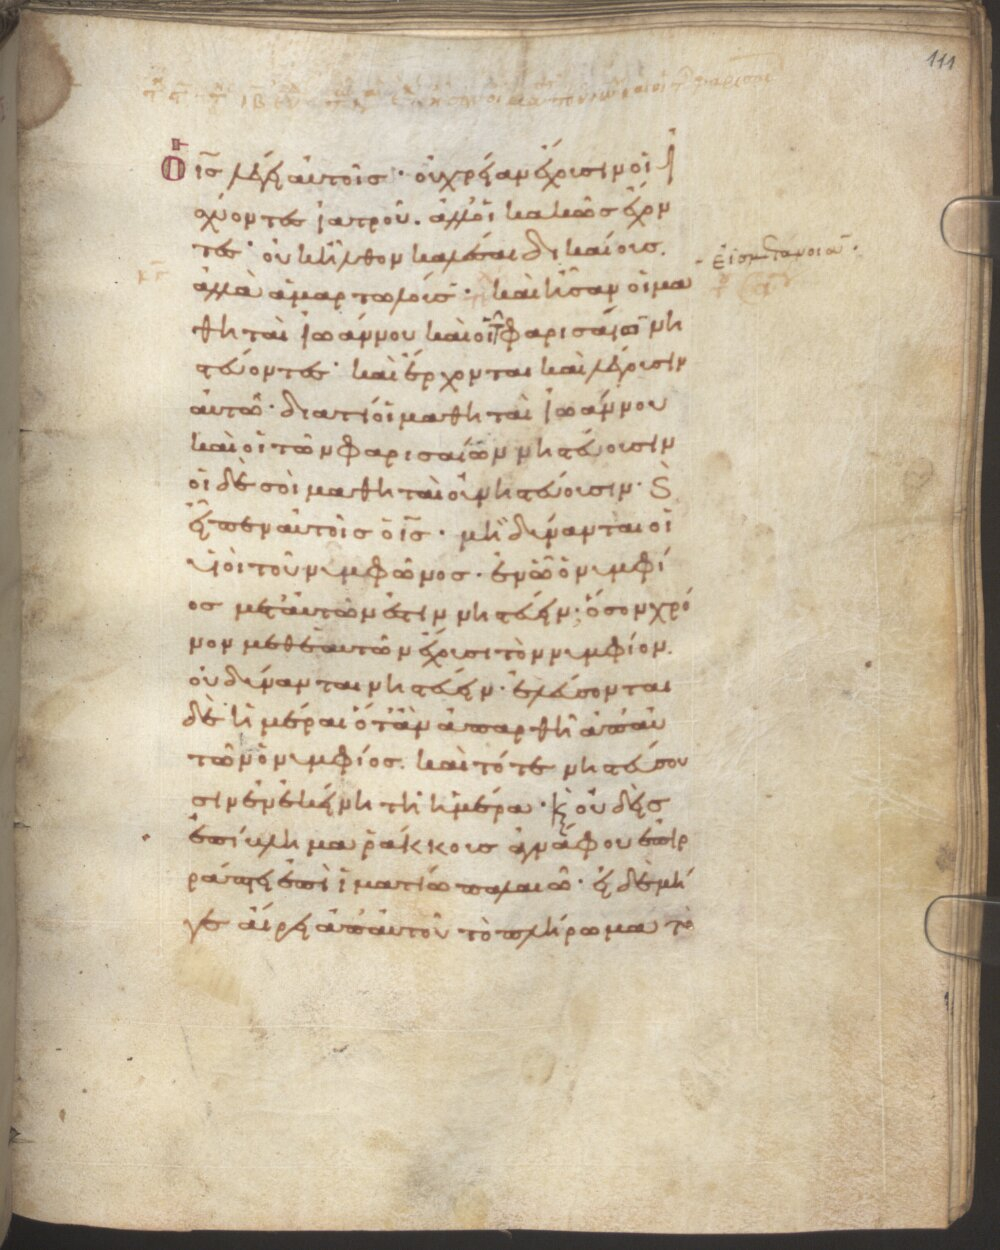 111
Ὁ ις λέγει αὐτοῖς· οὐ χρείαν ἔχουσιν οἱ ἰ
σχύοντες ἰατροῦ. ἀλλ' οἱ κακῶς ἔχον
τες· οὐκ ἦλθον καλέσαι δικαίους.
εἰς μετάνοιαν·
ἀλλὰ ἁμαρτωλούς· καὶ ἦσαν οἱ μα
θηταὶ Ἰωάννου καὶ οἱ τῶν φαρισαίων νη
στεύοντες· καὶ ἔρχονται καὶ λέγουσιν
αὐτῶ· διατί οἱ μαθηταὶ Ἰωάννου
καὶ οἱ τῶν φαρισαίων νηστεύουσιν
οἱ δὲ σοὶ μαθηταὶ οὐ νηστεύουσιν· Ϛ
εἶπεν αὐτοῖς ὁ ις· μὴ δύνανται οἱ
υἱοὶ τοῦ νυμφῶνος· ἐν ὧ ὁ νυμφί
ος μετ' αὐτῶν ἐστιν νηστεύειν; ὅσον χρό
νον μεθ' ἑαυτῶν ἔχουσι τὸν νυμφίον.
οὐ δύνανται νηστεύειν· ἐλεύσονται
δὲ ἡμέραι ὅταν ἀπαρθῆ ἀπ' αὐ
τῶν ὁ νυμφίος. καὶ τότε νηστεύσου
σιν ἐν ἐκείνη τῆ ἡμέρα· κ οὐδεὶς
ἐπίβλημα ῥάκκους ἀγνάφου ἐπιρ
ράπτει ἐπὶ ἱματίω παλαιῶ· εἰ δὲ μή
γε αἴρει ἀπ' αὐτοῦ τὸ πλήρωμα τὸ